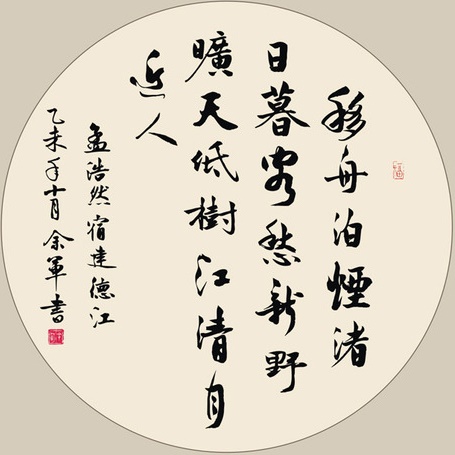 移舟泊煙渚
日暮客愁新野
曠天低樹江清月
近人
孟浩然宿建德江
乙未年十月余軍書